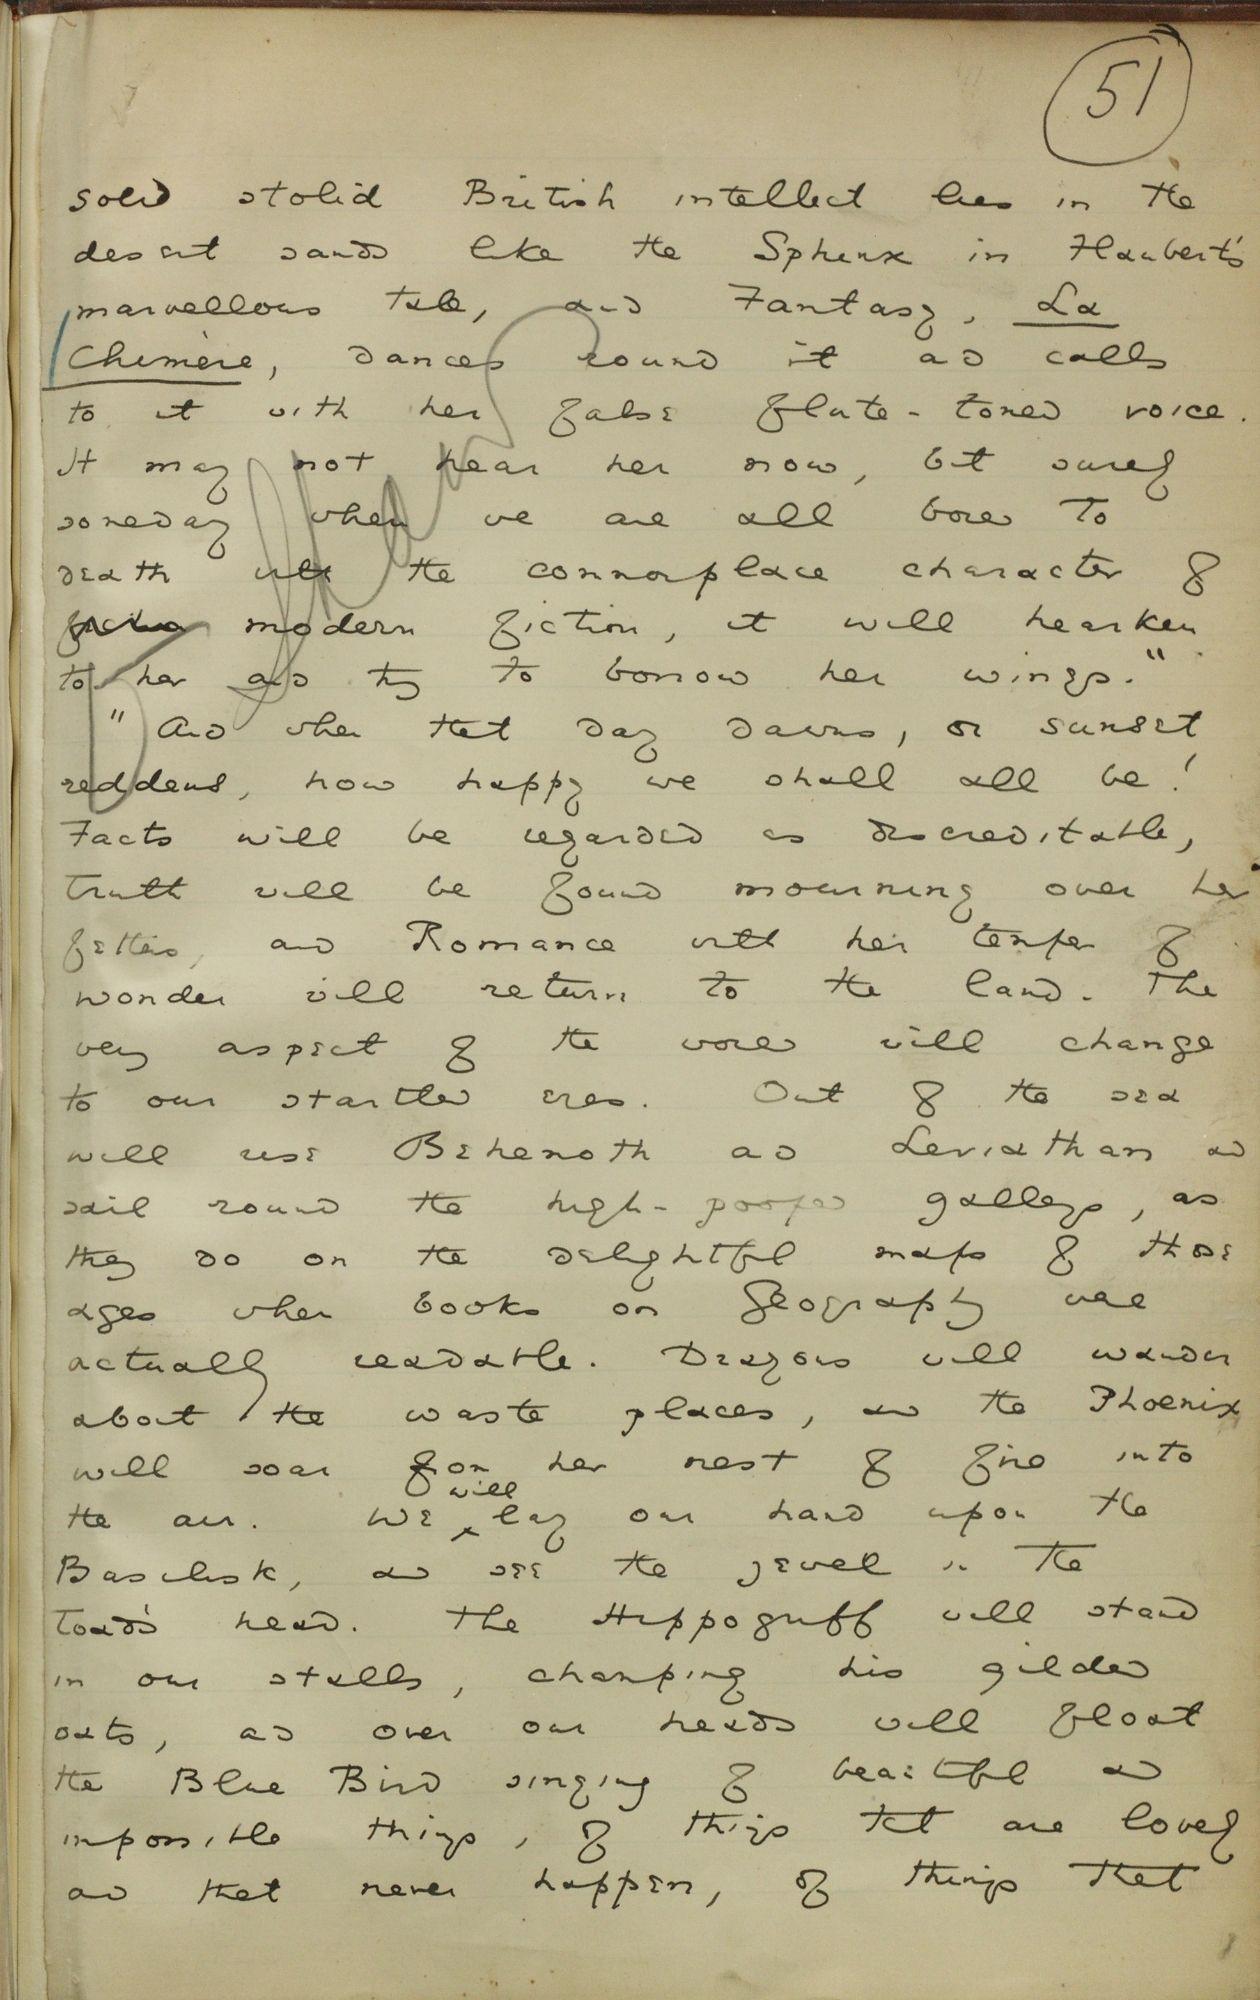 51
solid stolid British intellect lies in the
desert sands like the Sphinx in Flaubert's
marvellous tale, and Fantasy, La
Chimère, dances round it and calls
to it with her false flute-toned voice.
It may not hear her now, but surely
someday when we are all bored to
death with the commonplace character of
fiction modern fiction, it will hearken
to her and try to borrow her wings."
"And when that day dawns, or sunset
reddens, how happy we shall all be!
Facts will be regarded as discreditable,
truth will be found mourning over her
fetters, and Romance with her temper of
wonder will return to the land. The
very aspect of the world will change
to our startled eyes. Out of the sea
will rise Behemoth and Leviathan and
sail round the high-pooped galleys, as
they do on the delightful maps of those
ages when books on geography were
actually readable. Dragons will wander
about the waste places, and the Phoenix
will soar from her nest of fire into
the air. We will lay our hand upon the
Basilisk, and see the jewel in the
toad's head. The Hippogriff will stand
in our stalls, champing his gilded
oats, and over our heads will float
the Blue Bird singing of beautiful and
impossible things, of things that are lovely
and that never happen, of things that